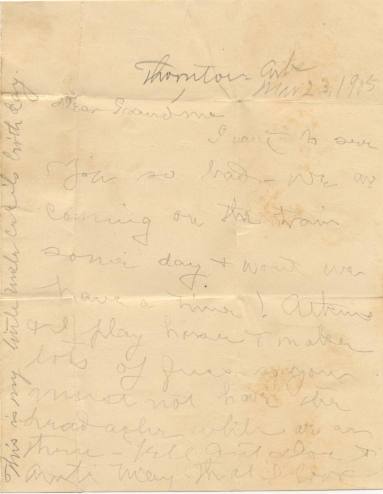 Thornton Ark
Mar 23, 1905
Dear Grandma
I want to see
you so bad - we are
coming on the train
some day & wont we
have a time! Atkins
& I play horse & makes
lots of fuss so you
must not have the
headaches while we are
there - Tell Aunt &
Aunti May that I love
This is my little uncle birth day.